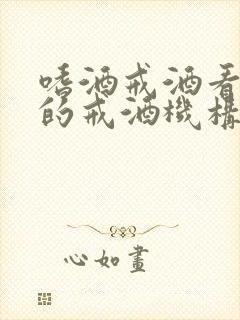 嗜酒戒酒看
的戒酒機構
心如畫